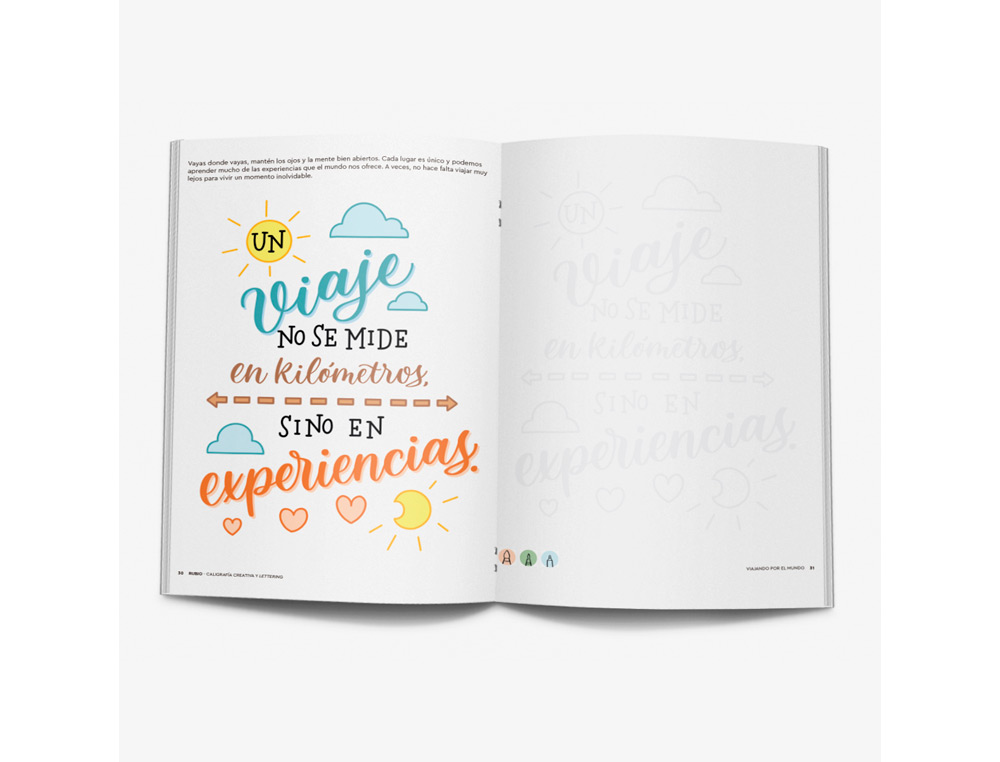 Vayas donde vayas, mantén los ojos y la mente bien abiertos. Cada lugar es único y podemos
aprender mucho de las experiencias que el mundo nos ofrece. A veces, no hace falta viajar muy
lejos para vivir un momento inolvidable.
UN
viaje
NO SE MIDE
en kilómetros,
SINO EN
experiencias.
30 RUBIO · CALIGRAFÍA CREATIVA Y LETTERING
UN
viaje
NO SE MIDE
en kilómetros,
SINO EN
experiencias.
VIAJANDO POR EL MUNDO 31